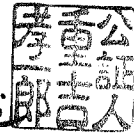 公証人
重吉
孝一郎